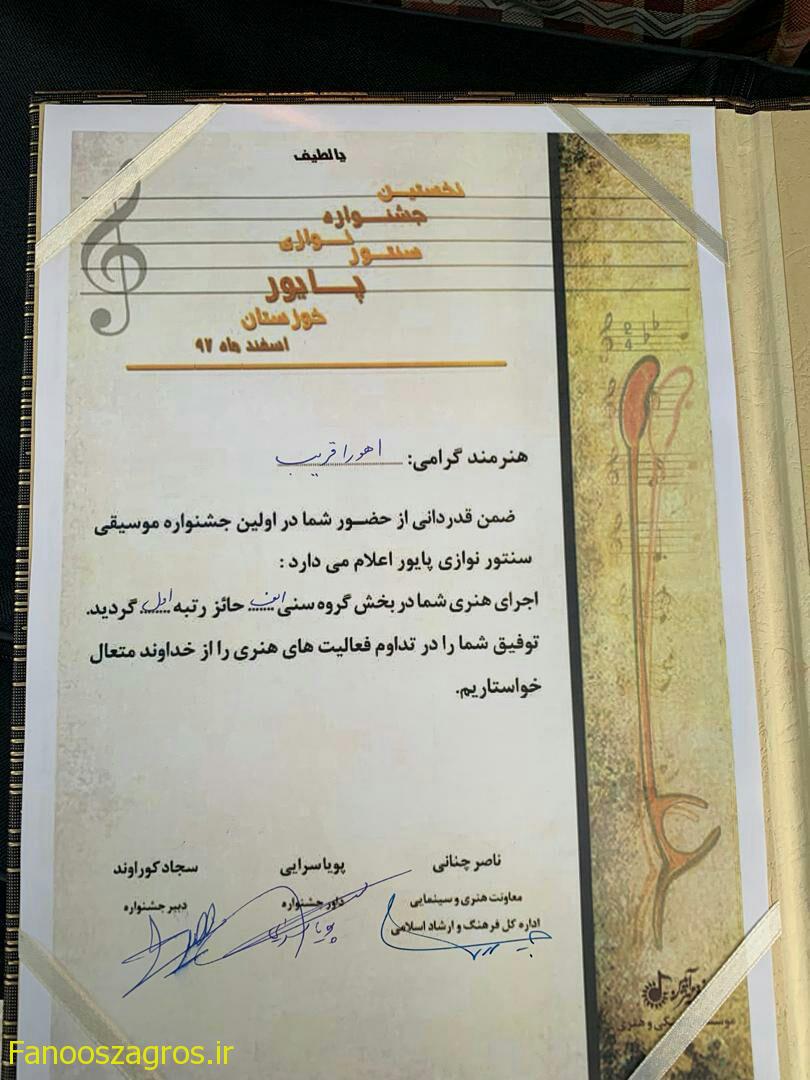 یا لطیف
نخستین
جشنواره
سنتور نوازی
پایور
خوزستان
اسفند ماه ۹۷
هنرمند گرامی: اهورا قریب
ضمن قدردانی از حضور شما در اولین جشنواره موسیقی
سنتور نوازی پایور اعلام می دارد :
اجرای هنری شما در بخش گروه سنی الف حائز رتبه اول گردید.
توفیق شما را در تداوم فعالیت های هنری را از خداوند متعال
خواستاریم.
ناصر چنانی
معاونت هنری و سینمایی
اداره کل فرهنگ و ارشاد اسلامی
پویا سرایی
داور جشنواره
پویا سرایی
سجاد کوراوند
دبیر جشنواره
2
4
Fanooszagros.ir